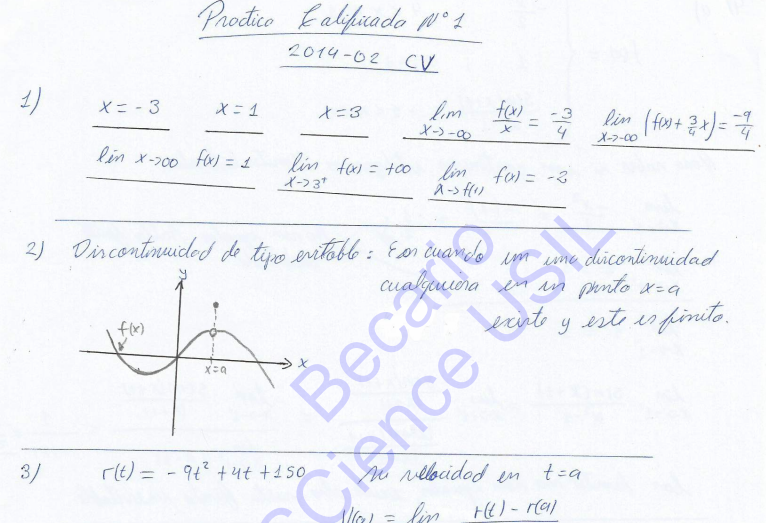 Practica Calificada N°1
2014-02 CV
1) x = -3 x = 1 x = 3 lim x→-∞ f(x)/x = -3/4 lim x→-∞ (f(x) + 3/4 x) = -9/4.
lim x→∞ f(x) = 1 lim x→3⁺ f(x) = +∞ lim x→f(1) f(x) = -2
2) Discontinuidad de tipo evitable: Es cuando en una discontinuidad
cualquiera en un punto x=a
existe y este es finito.
y
f(x)
x=a
x
3) r(t) = -9t² + 4t + 150 su velocidad en t=a
V(a) = lim r(t) - r(a)
Becario
SCience USIL